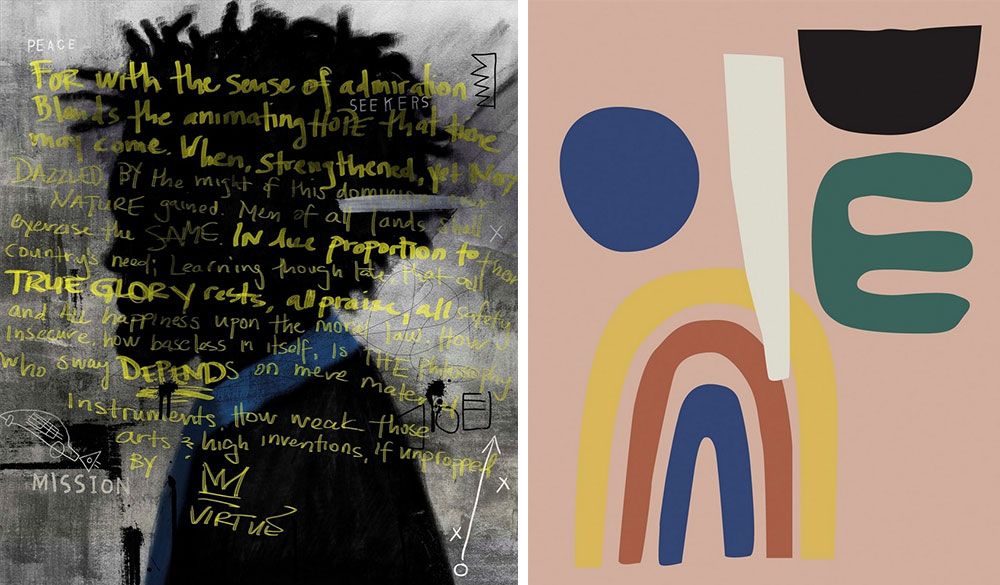 PEACE
FOR with the sense of admiration
SEEKERS
Blends the animating HOPE that there
may come. When, strengthened, yet Not
DAZZLED BY the might of this dominion
NATURE gained. Men of all lands shall
exercise the SAME. IN due proportion to their
country's need; Learning though late, that all
TRUE GLORY rests, all praise, all safety,
and all happiness upon the moral law. How
Insecure, how baseless in itself, Is THE Philosophy
Who sway DEPENDS on mere material
Instruments. How weak those
arts & high inventions, if unpropped
BY
VIRTUE
MISSION
X
X
X